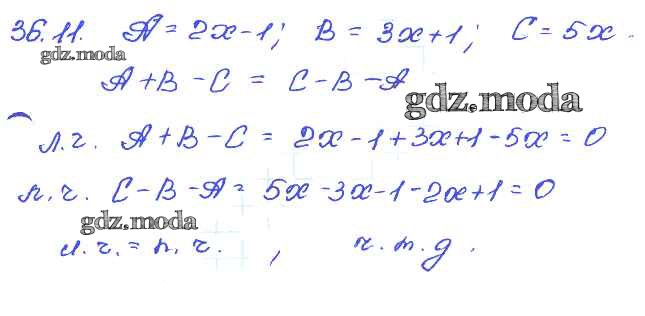 36.11. A = 2x - 1; B = 3x + 1; C = 5x.
gdz.moda
A + B - C = C - B - A
gdz.moda
л.ч. A + B - C = 2x - 1 + 3x + 1 - 5x = 0
п.ч. C - B - A = 5x - 3x - 1 - 2x + 1 = 0
gdz.moda
л.ч. = п.ч. , ч.т.д.